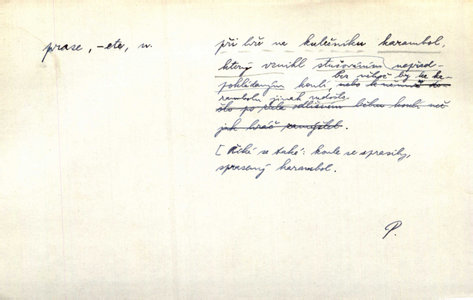 prase, -ete, n.
při hře na kulečníku karambol,
který vznikl stučováním nepřed-
pokládaným koulí nebo k němuž do-
bez něhož by ke ka-
rambolu jinak nedošlo
šlo po zcela odlišném běhu koulí než
jak hráč zamýšlel.
[Říká se také: koule se sprasily,
sprasený karambol.
P.